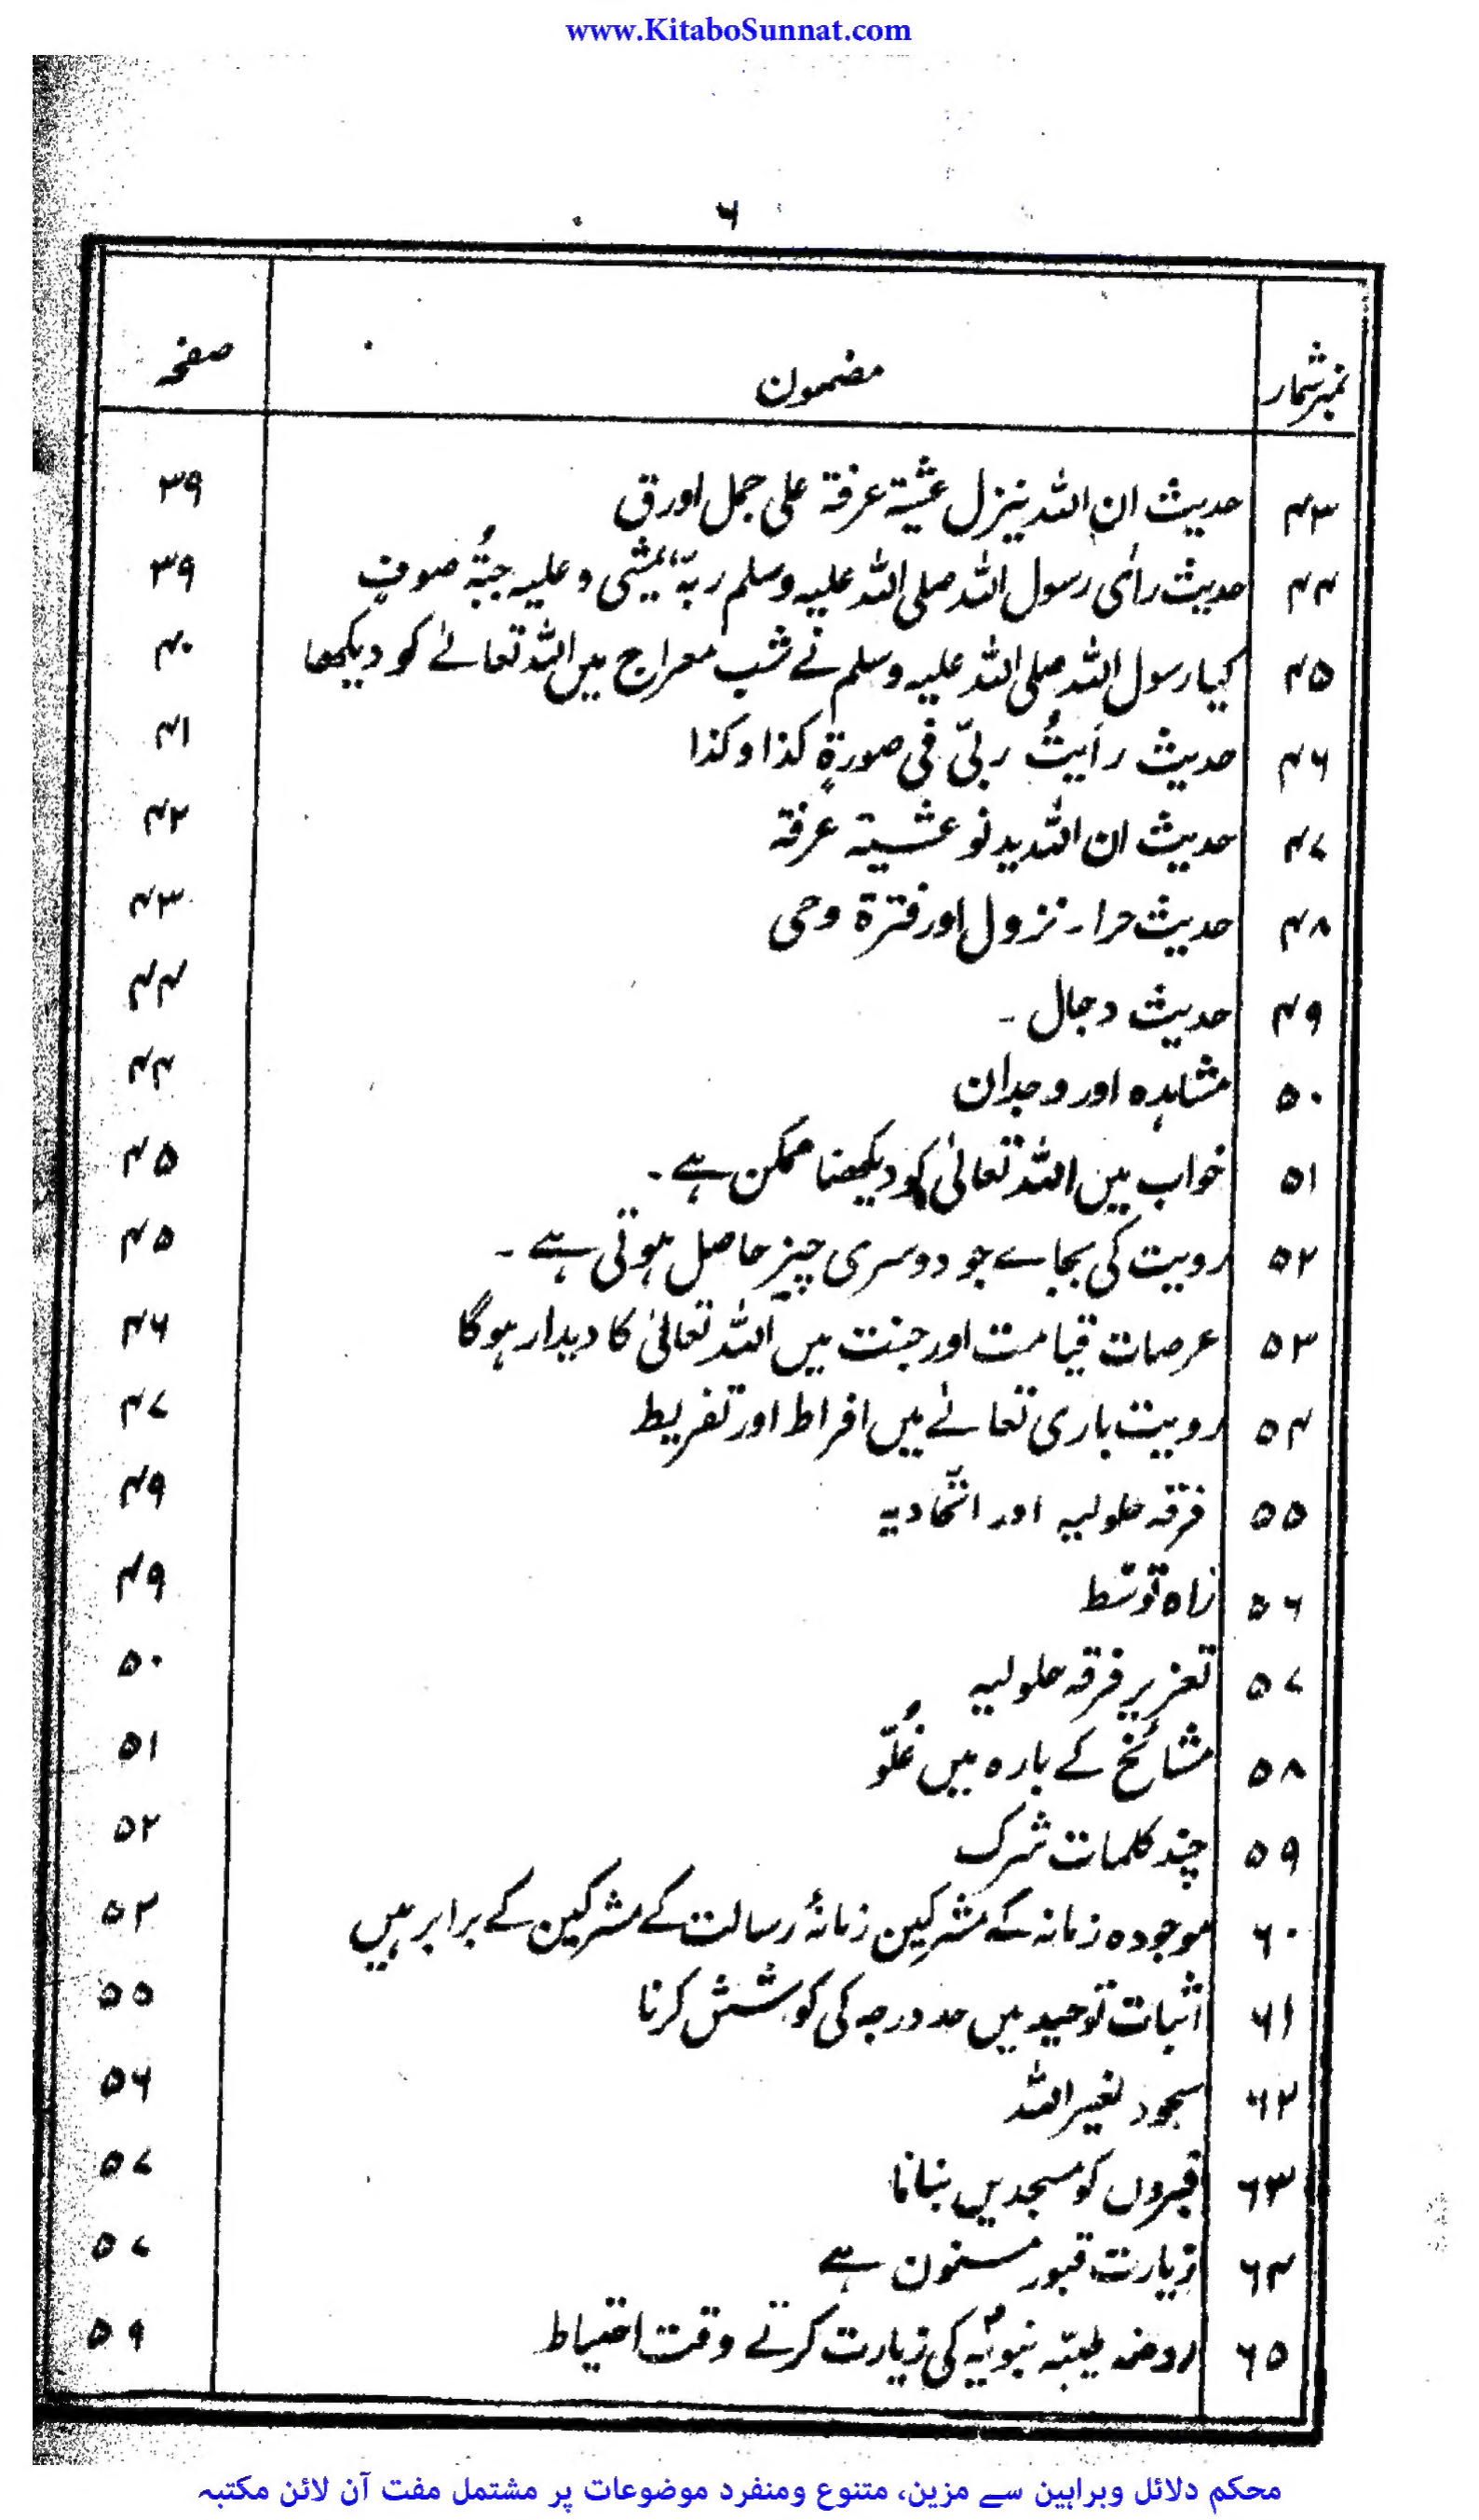 www.KitaboSunnat.com
۶
نمبرشمار مضمون صفحہ
۴۳ حدیث ان اللہ ینزل عشیۃ عرفۃ علی جمل اورق ۳۹
۴۴ حدیث رأی رسول اللہ صلی اللہ علیہ وسلم ربہّ یمشی وعلیہ جبّۃُ صوفٍ ۳۹
۴۵ کیا رسول اللہ صلی اللہ علیہ وسلم نے شب معراج میں اللہ تعالےٰ کو دیکھا ۴۰
۴۶ حدیث رأیتُ ربیّ فی صورۃٍ کذا وکذا ۴۱
۴۷ حدیث ان اللہ یدنو عشیۃ عرفۃ ۴۲
۴۸ حدیث حرا۔ نزول اور فترۃ وحی ۴۳
۴۹ حدیث دجال ۔ ۴۴
۵۰ مشاہدہ اور وجدان ۴۴
۵۱ خواب میں اللہ تعالیٰ کو دیکھنا ممکن ہے ۔ ۴۵
۵۲ رویت کی بجاے جو دوسری چیز حاصل ہوتی ہے ۔ ۴۵
۵۳ عرصات قیامت اور جنت میں اللہ تعالیٰ کا دیدار ہوگا ۴۶
۵۴ رویت باری تعالےٰ میں افراط اور تفریط ۴۷
۵۵ فرقہ حلولیہ اور اتّحادیہ ۴۹
۵۶ راہ توسّط ۴۹
۵۷ تعزیر فرقہ حلولیہ ۵۰
۵۸ مشائخ کے بارہ میں غُلّو ۵۱
۵۹ چند کلمات شرک ۵۲
۶۰ موجودہ زمانہ کے مشرکین زمانۂ رسالت کے مشرکین کے برابر ہیں ۵۲
۶۱ اثبات توحید میں حد درجہ کی کوشش کرنا ۵۵
۶۲ سجود لغیر اللہ ۵۶
۶۳ قبروں کو مسجدیں بنانا ۵۷
۶۴ زیارت قبور مسنون ہے ۵۷
۶۵ روضہ طیبّہ نبویہؐ کی زیارت کرتے وقت احتیاط ۵۹
محکم دلائل وبراہین سے مزین، متنوع ومنفرد موضوعات پر مشتمل مفت آن لائن مکتبہ